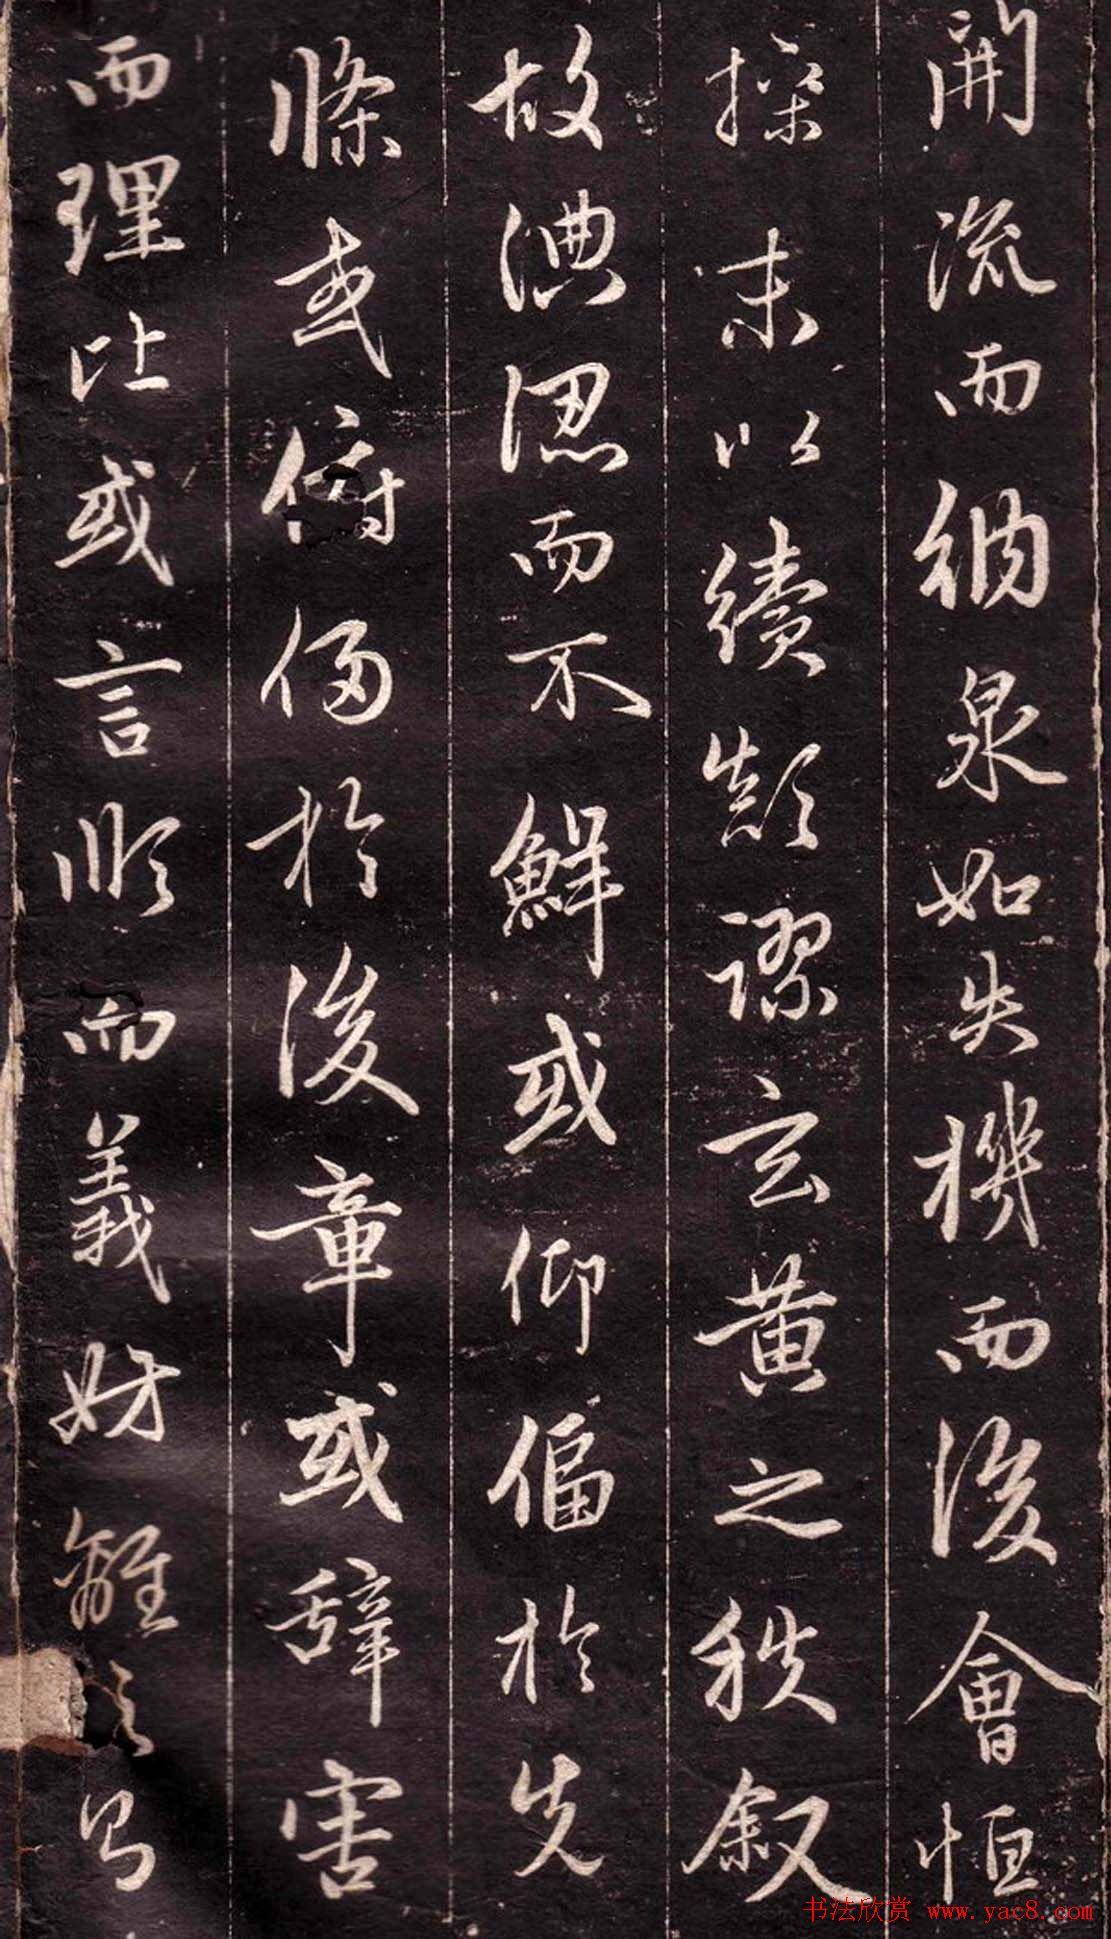 開流而納泉如失機而後會恒
操末以續顛謬玄黃之秩叙
故淟涊而不鮮或仰偪於先
條或俯侵於後章或辞害
而理比或言順而義妨離之則
书法欣赏 www.yac8.com